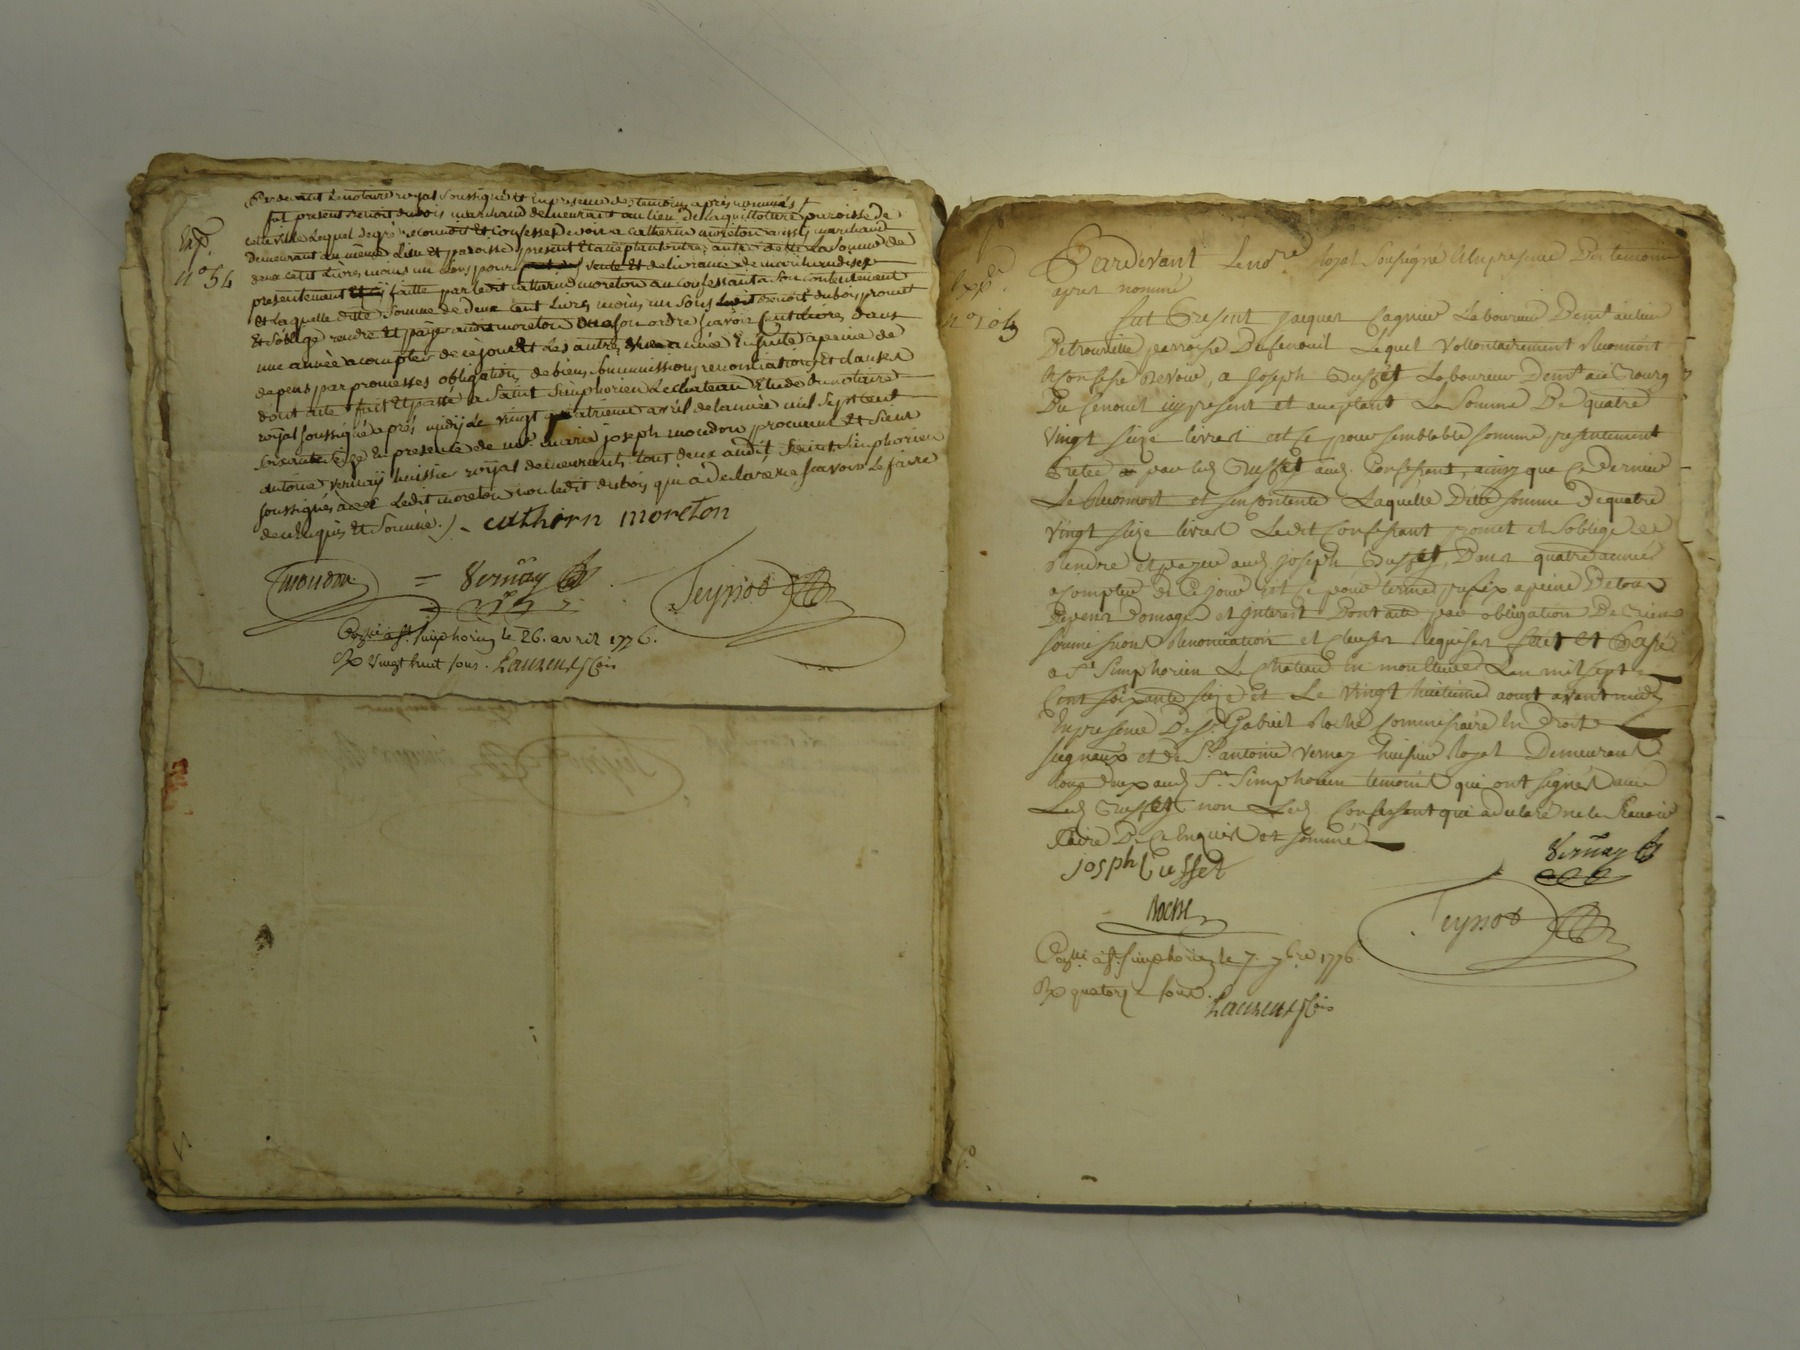 Expé.
n° 54
Pardevant Le notaire royal soussigné et en presence des temoins après nommés
fut present Benoit dubois marchand demeurant au lieu de Laquillotiere paroisse de
cette ville Lequel de gré reconnoit et Confesse devoir a catherin moreton aussy marchand
demeurant du même Lieu et paroisse present et acceptant entre autre dette La somme de
deux cent Livres moins un sous pour vente et delivrance de marchandises
presentement faitte par ledit catherin moreton au confessant a son contentement
Et laquelle ditte somme de deux cent Livres moins un sous Ledit benoit dubois promet
Et soblige rendre Et payer audit moreton ou a son ordre scavoir Cent Livres dans
une année a compter de ce jour Et Les autres année Ensuite a peine de
depens par promesses obligation de biens soumissions renonciations et clauses
dont acte fait Et passé a Saint Simphorien Le chateau Etude du notaire
royal soussigné après midy le vingt quatrieme avril de lannée mil sept cent
soixante seize En presence de me. marie joseph moudon procureur et sieur
antoine vernay huissier royal demeurants tous deux audit Saint Simphorien
soussignés avec Ledit moreton non ledit dubois qui a declaré ne scavoir Le faire
de ce Enquis Et Sommé ./. catherin moreton
moudon = Vernay
Teyssot
Con.lé à St. Simphorien le 26. avril 1776.
Rx Vingt huit sous. Laurenson
Expé.
n° 104
Pardevant Le nore. Royal Soussigné et En presence Des temoins
apres nommé
fut Present jacques Cagnieu Laboureur Demt. au lieu
De trouville parroisse De fenouil Lequel Vollontairement Reconnoit
et Confesse Devoir a joseph Cusset Laboureur Demt. au Bourg
Du fenouil icy present et acceptant La Somme De quatre
vingt seize livres et ce pour semblable somme presentement
Pretée par led Cusset aud. Confessant, ainsy que Ce dernier
Le Reconnoit et s'en Contente Laquelle Ditte somme De quatre
vingt seize livres Ledit Confessant promet et s'oblige de
Rendre et payer aud. joseph Cusset, Dans quatre années
a Compter de Ce jour et Ce pour terme prefix a peine De tous
Depens Domages et Interest Dont acte par obligation De Biens
soumissions Renonciation et Clauses Requises fait et Passé
a St. Simphorien Le Chateau En mon Etude L'an mil sept
Cent soixante seize et Le vingt huitieme aoust avant midy
En presence De Sr. Gabriel Roche Commissaire En Droits
seigneuriaux et de Sr. antoine Vernay huissier Royal Demeurant
tous deux aud. St. Simphorien temoins qui ont signés avec
Led. Cusset non Led. Confessant qui a declaré ne le scavoir
faire De Ce Enquis et sommé
Joseph Cusset
Vernay
Roche
Teyssot
Con.lé à St. Simphorien le 7. 7bre 1776.
Rx quatorze sous.
Laurenson